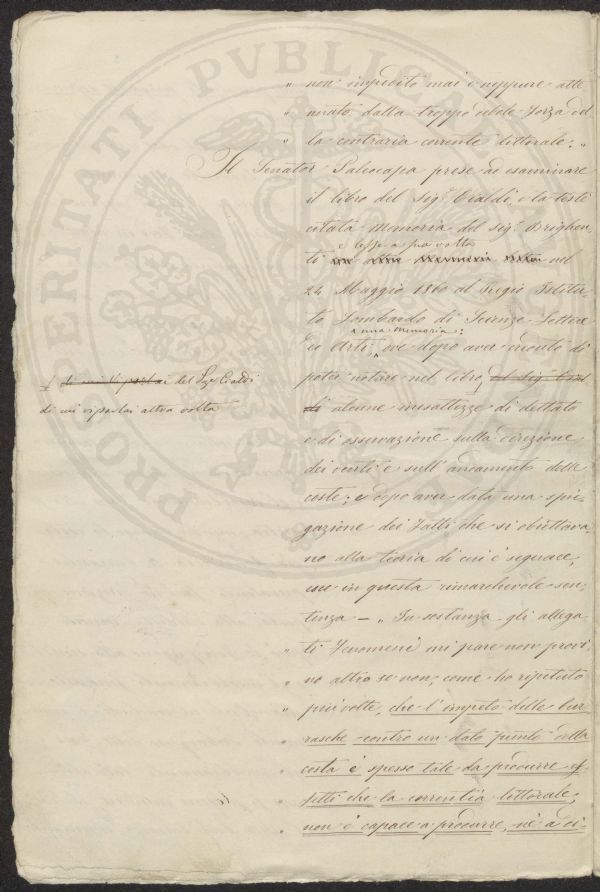 PROSPERITATI PVBLICAE
„ non impedito mai e neppure atte
„ nuato dalla troppo debole forza del
„ la contraria corrente littorale: „
Il Senator Paleocapa prese ad esaminare
il libro del Sigr Cialdi, e la teste
citata Memoria del Sigr Brighen
e lesse a sua volta
ti nel
24 Maggio 1860 al Regio Istitu
to Lombardo di Scienze Lettere
una Memoria:
ed Arti, ove dopo aver creduto di
poter notare nel libro, del Sigr Cial
di alcune inesattezze di dettato
e di osservazione sulla direzione
dei venti e sull'andamento delle
coste; e dopo aver data una spie
gazione dei fatti che si obiettava
no alla teoria di cui è seguace,
esce in questa rimarchevole sen
tenza — „ In sostanza gli allega
„ ti fenomeni mi pare non provi
„ no altro se non, come ho ripetuto
„ più volte, che l'impeto delle bur
„ rasche contro un dato punto della
„ costa è spesso tale da produrre ef
„ fetti che la correntìa littorale,
„ non è capace a produrre, nè a di-
del Sigr Cialdi
di cui riparlai altra volta